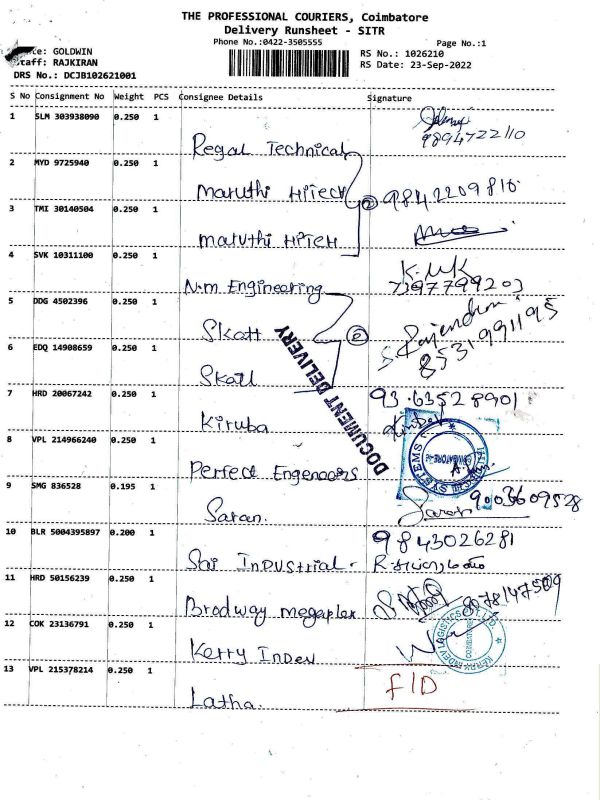 THE PROFESSIONAL COURIERS, Coimbatore
Delivery Runsheet - SITR
Phone No.:0422-3505555
Page No.:1
GOLDWIN
RS No.: 1026210
Staff: RAJKIRAN
RS Date: 23-Sep-2022
DRS No.: DCJB102621001
S No Consignment No Weight PCS Consignee Details Signature
1 SLM 303938090 0.250 1
9894722110
Regal Technical
2 MYD 9725940 0.250 1
Maruthi HiTech
2 9842209816
3 TMI 30140504 0.250 1
Maruthi HiTEH
4 SVK 10311100 0.250 1
K.
N.m. Engineering 7397799203
5 DDG 4502396 0.250 1
Skatt
2
S Rajendran
8531991195
6 EDQ 14908659 0.250 1
Skatl
DOCUMENT DELIVERY
7 HRD 20067242 0.250 1
93.63528901
Kiruba
8 VPL 214966240 0.250 1
Perfect Engeneers
SYSTEMS
9 SMG 836528 0.195 1
Saran.
Saran 9003609528
10 BLR 5004395897 0.200 1
9843026281
Sai InDUStrial.
11 HRD 50156239 0.250 1
Brodway megaplex
12 COK 23136791 0.250 1
Kerry InDev
13 VPL 215378214 0.250 1
F/D
Latha.